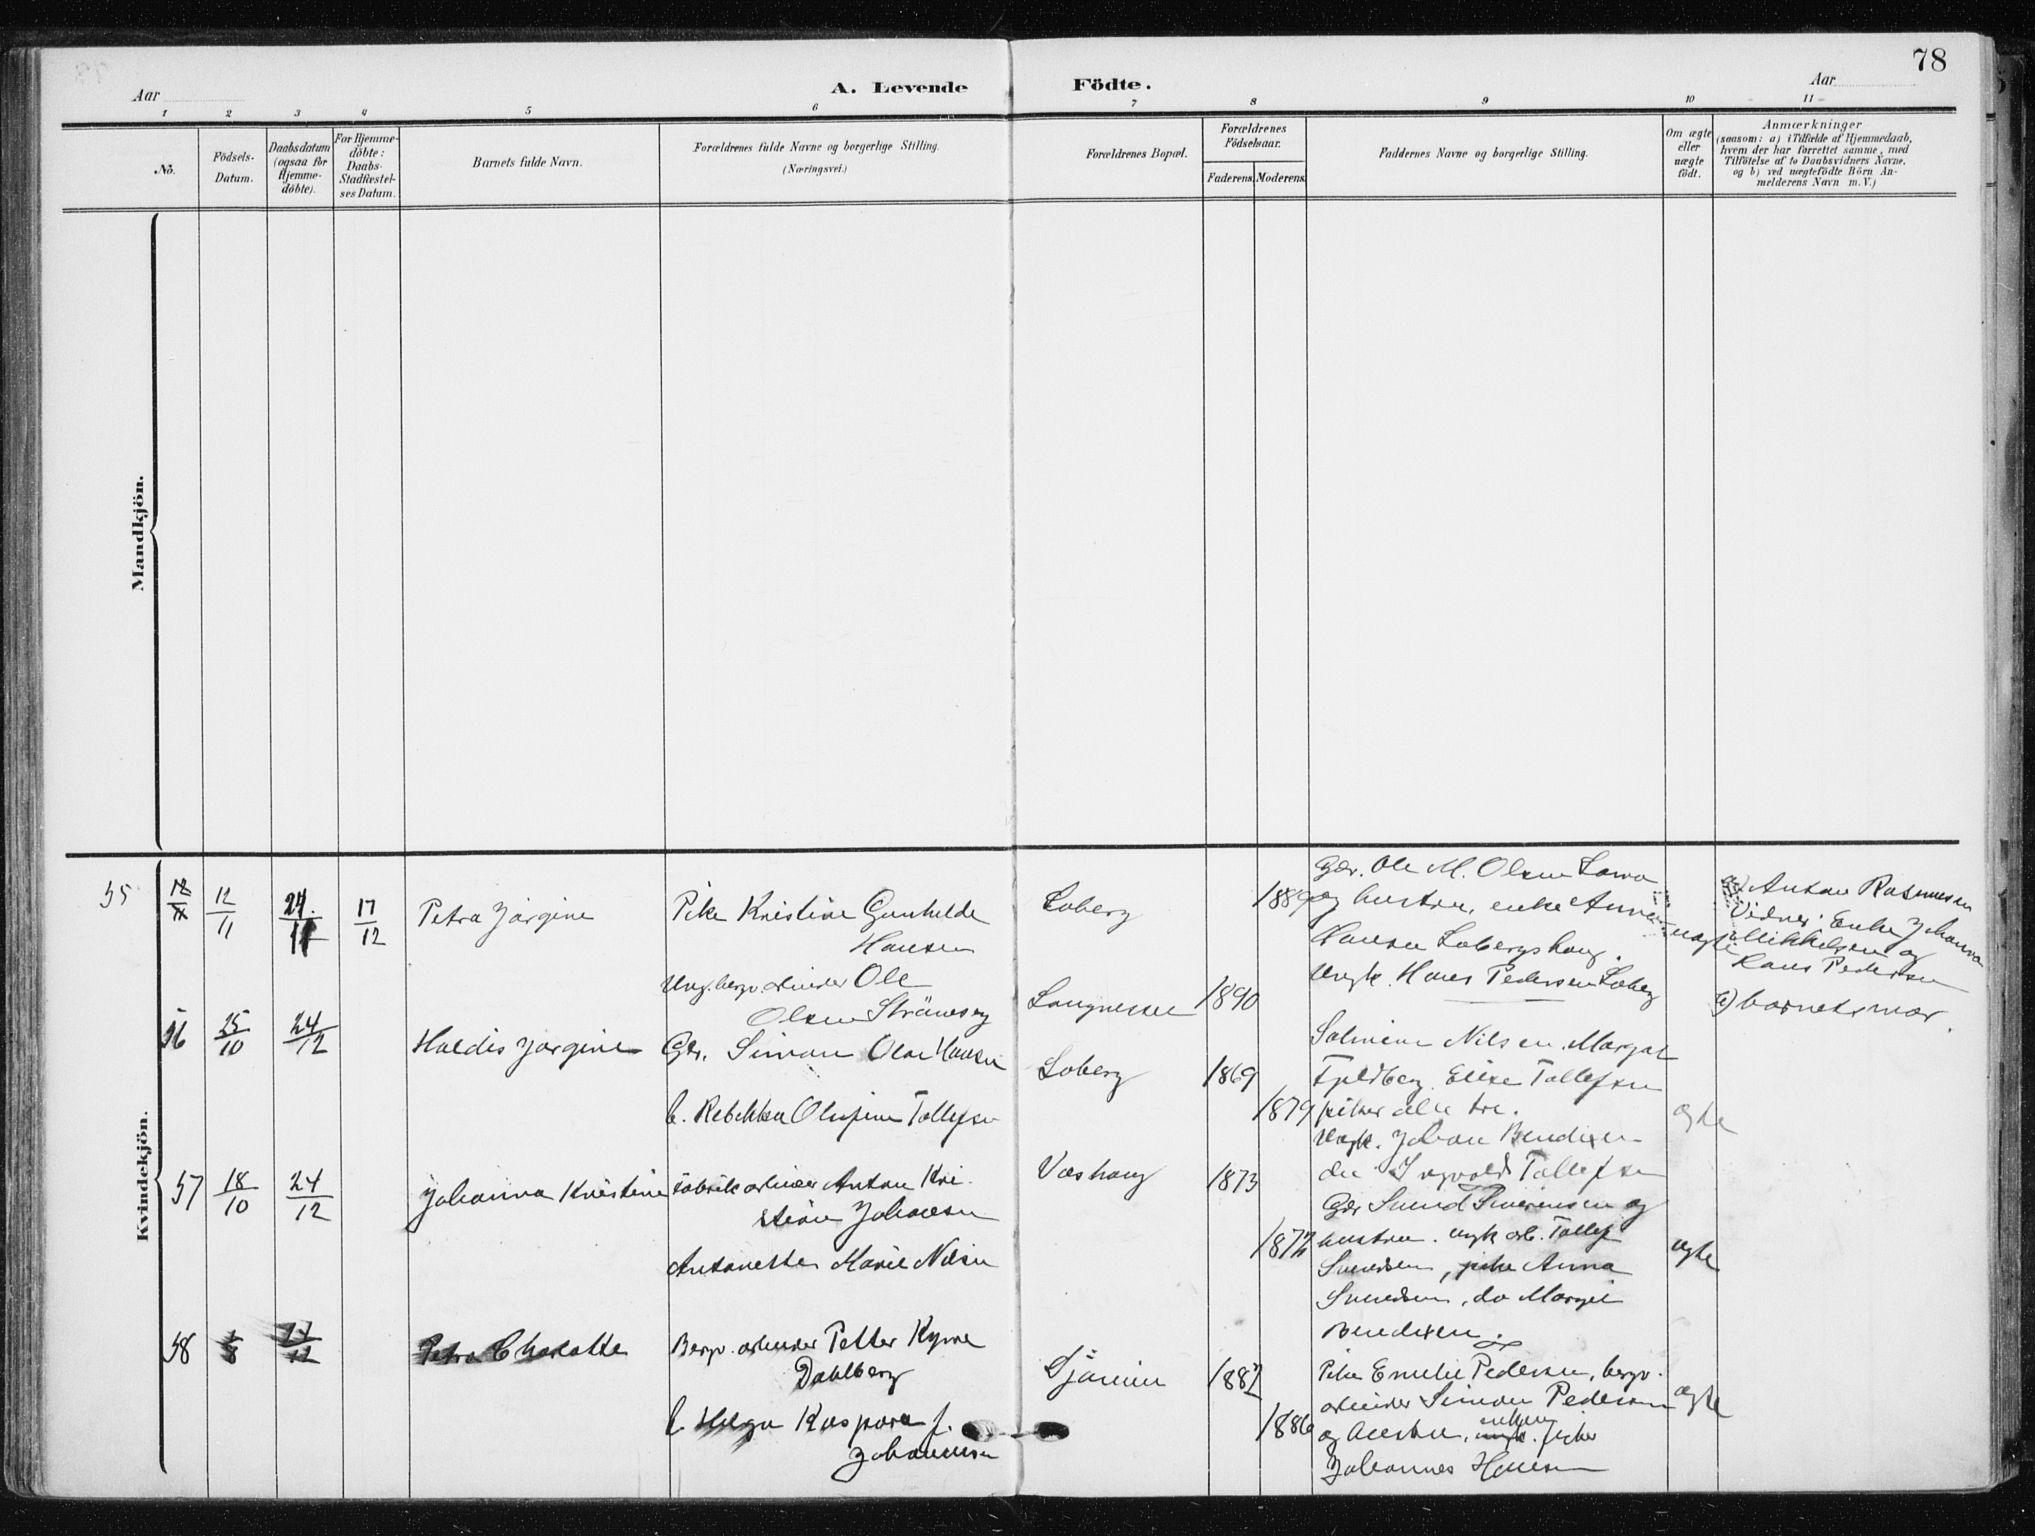 78
Aar
A. Levende Födte.
Aar
1 2 3 4 5 6 7 8 9 10 11
No.
Födsels-Datum.
Daabsdatum (ogsaa for Hjemme-döbte).
For Hjemme-döbte: Daabs-Stadfæstel-ses Datum.
Barnets fulde Navn.
Forældrenes fulde Navne og borgerlige Stilling.
(Næringsvei.)
Forældrenes Bopæl.
Forældrenes Födselsaar.
Faderens. Moderens.
Faddernes Navne og borgerlige Stilling.
Om ægte eller uægte födt.
Anmærkninger
(saasom: a) i Tilfælde af Hjemmedaab,
hvem der har forrettet samme, med
Tilföielse af to Daabsvidners Navne,
og b) ved uægtefödte Börn An-
melderens Navn m. V.)
Mandkjön.
Kvindekjön.
55
12/11
24/11
17/12
Petra Jörgine
Pike Kristine Gunhilde
Hansen
Ung. bergv. arbeider Ole
Olsen
Loberg
1890
1889
Gdr. Ole M. Olsen
og hustru, enke Anna
Hansen Lobergshaug
Ungk. Hans Pedersen Loberg
uægte
a) Anton Rasmussen
Vidner: Enke Johanna
Mikkelsen og
Hans Pedersen
b) barnets mor.
56
25/10
24/12
Haldis Jørgine
Gdr. Simon Olai Hansen
h. Rebekka Olufine Tollefsen
Loberg
1869
1879
Nilsen, Margat
Fjeldberg, Elise Tollefsen
piker alle tre.
Ungk. Johan Bendixen
do Ingvald Tollefsen
ægte
57
18/10
24/12
Johanna Kristine
Fabrik arbeider Anton Kri-
stian Johansen
Antonette Marie Nilsen
Vashaug
1873
1872
Gdr
og
hustru. ungk arb. Tollef
Svendsen, pike Anna
Svendsen, do Margit
Bendixen.
ægte
58
1/8
24/12
Petra Charlotte
Bergv. arbeider Petter
Dahlberg
h. Helga Kaspara f.
Johannesen
1887
1886
Pike Emelie Pedersen, bergv.
arbeider Simon Pedersen
og hustru, enkem. fisker
Johannes Hansen
ægte